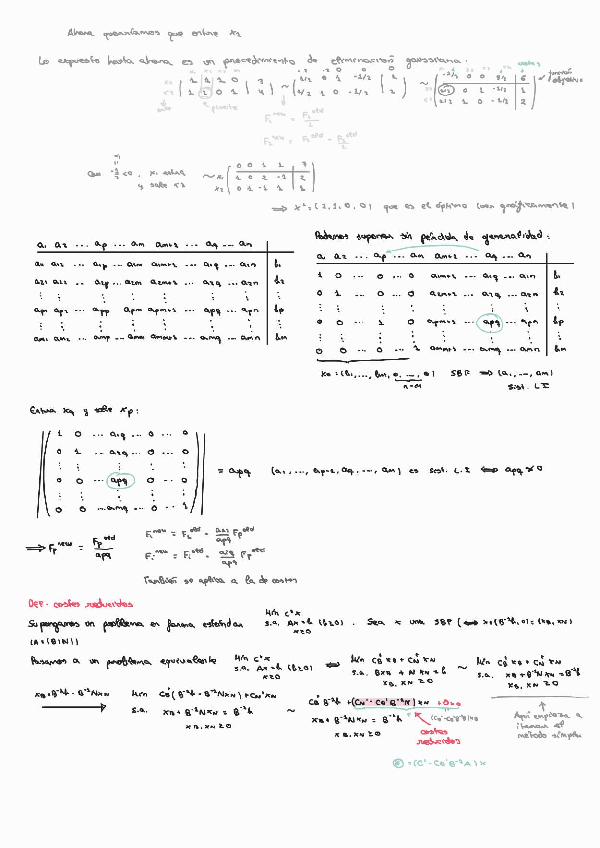 Ahora querríamos que entre x2
Lo expuesto hasta ahora es un procedimiento de eliminación gaussiana:
costes
función objetivo
sale
pivote
F1^new = F1^old / 2
F2^new = F2^old - F1^old / 2
Con -1/2 < 0, x1 entra
y sale x3
0 0 1 1 7
1 0 2 -1 2
0 1 -1 1 1
⟹ x* = (2,1,0,0) que es el óptimo (ver gráficamente)
a1 a2 ... ap ... am am+1 ... aq ... an
a11 a12 ... a1p ... a1m a1m+1 ... a1q ... a1n b1
a21 a22 ... a2p ... a2m a2m+1 ... a2q ... a2n b2
ap1 ap2 ... app ... apm apm+1 ... apq ... apn bp
am1 am2 ... amp ... amm amm+1 ... amq ... amn bm
Podemos suponer sin pérdida de generalidad:
a1 a2 ... ap ... am am+1 ... aq ... an
1 0 ... 0 ... 0 a1m+1 ... a1q ... a1n b1
0 1 ... 0 ... 0 a2m+1 ... a2q ... a2n b2
0 0 ... 1 ... 0 apm+1 ... apq ... apn bp
0 0 ... 0 ... 1 amm+1 ... amq ... amn bm
x0 = (b1, ..., bm, 0, ..., 0) SBF ⟹ (a1, ..., am)
n-m sist. L.I
Entra xq y sale xp:
1 0 ... a1q ... 0 ... 0
0 1 ... a2q ... 0 ... 0
0 0 ... apq ... 0 ... 0
0 0 ... amq ... 0 ... 1
= apq (a1, ..., ap-1, aq, ..., am) es sist. L.I ⟺ apq ≠ 0
⟹ Fp^new = Fp^old / apq
F1^new = F1^old - a1q/apq Fp^old
Fi^new = Fi^old - aiq/apq Fp^old
También se aplica a la de costes
DEF. costes reducidos
Supongamos un problema en forma estándar Min c^t x s.a. Ax = b (b≥0) x≥0 . Sea x una SBF (⟺ x = (B^-1 b, 0) = (xB, xN)
(A = (B|N))
Pasamos a un problema equivalente Min c^t x s.a. Ax = b (b≥0) x≥0 ⟺ Min cB^t xB + cN^t xN s.a. BxB + NxN = b xB, xN ≥0 ~ Min cB^t xB + cN^t xN s.a. xB + B^-1 N xN = B^-1 b xB, xN ≥0
xB = B^-1 b - B^-1 N xN Min cB^t (B^-1 b - B^-1 N xN) + cN^t xN s.a. xB + B^-1 N xN = B^-1 b xB, xN ≥0 ~ cB^t B^-1 b + (cN^t - cB^t B^-1 N) xN + 0 xB
xB + B^-1 N xN = B^-1 b
xB, xN ≥0
costes reducidos
Aquí empieza a iterar el método simplex
= (c^t - cB^t B^-1 A) x